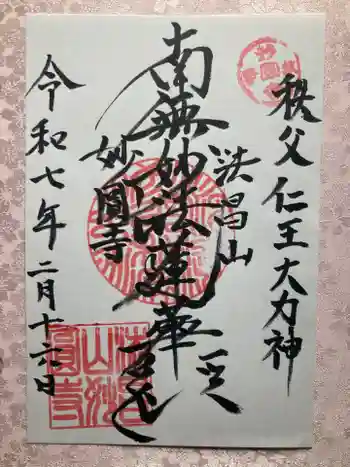 秩父仁王大力神
法昌山
南無妙法蓮華経
妙圓寺
令和七年二月十六日